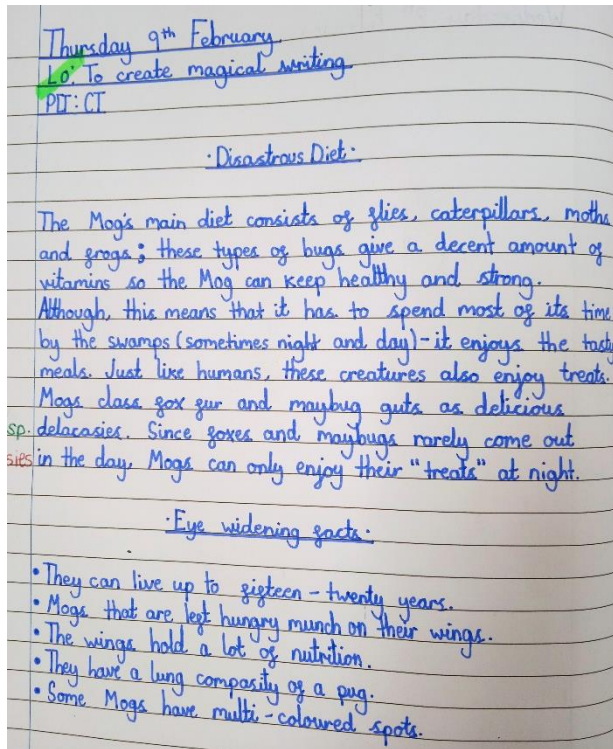 Thursday 9th February
Lo: To create magical writing
PLT: CT
·Disastrous Diet·
The Mog's main diet consists of flies, caterpillars, moths
and frogs; these types of bugs give a decent amount of
vitamins so the Mog can keep healthy and strong.
Although, this means that it has to spend most of its time
by the swamps (sometimes night and day) - it enjoys the tasty
meals. Just like humans, these creatures also enjoy treats.
Mogs class fox fur and maybug guts as delicious
sp. delacasies. Since foxes and maybugs rarely come out
sies in the day, Mogs can only enjoy their "treats" at night.
·Eye widening facts·
• They can live up to fifteen - twenty years.
• Mogs that are left hungry munch on their wings.
• The wings hold a lot of nutrition.
• They have a lung compasity of a pug.
• Some Mogs have multi-coloured spots.